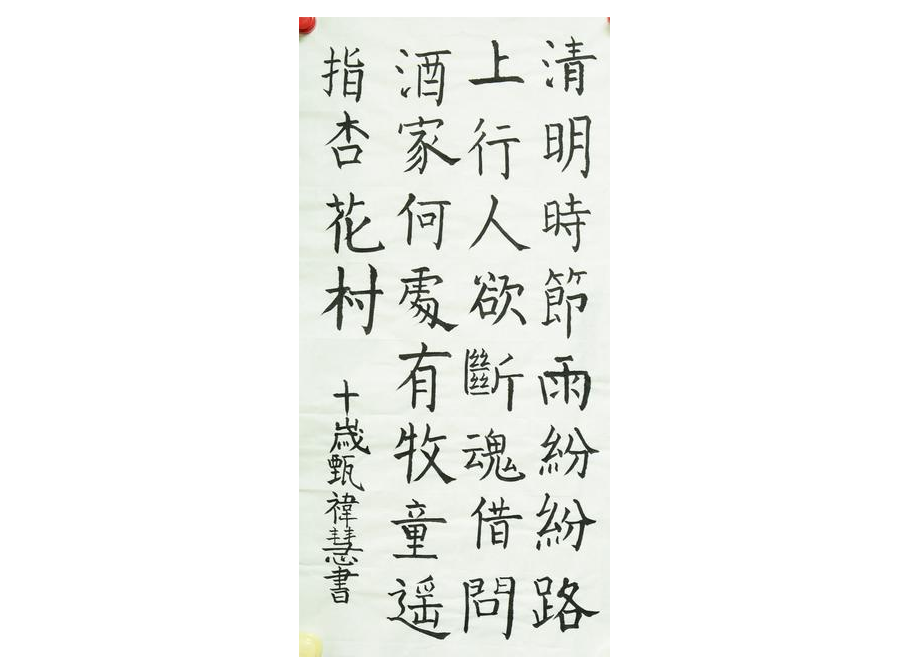 清明時節雨紛紛路
上行人欲斷魂借問
酒家何處有牧童遥
指杏花村
十歲甄禕慧書